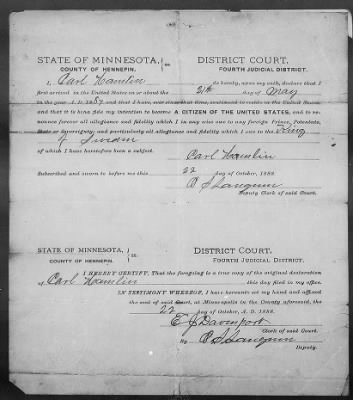 STATE OF MINNESOTA, } ss. DISTRICT COURT,
COUNTY OF HENNEPIN. FOURTH JUDICIAL DISTRICT.
I, Carl Hamlin do hereby, upon my oath, declare that I
first arrived in the United States on or about the 21st day of May
in the year A. D. 1887 and that I have, ever since that time, continued to reside in the United States,
and that it is bona fide my intention to become A CITIZEN OF THE UNITED STATES, and to re-
nounce forever all allegiance and fidelity which I in any wise owe to any foreign Prince, Potentate,
State or Sovereignty; and particularly all allegiance and fidelity which I owe to the King
of
of which I have heretofore been a subject.
Carl Hamlin
Subscribed and sworn to before me this 22 day of October, 1888.
Deputy Clerk of said Court.
STATE OF MINNESOTA, } ss. DISTRICT COURT,
COUNTY OF HENNEPIN. FOURTH JUDICIAL DISTRICT.
I HEREBY CERTIFY, That the foregoing is a true copy of the original declaration
of Carl Hamlin this day filed in my office.
IN TESTIMONY WHEREOF, I have hereunto set my hand and affixed
the seal of said court, at Minneapolis in the County aforesaid, the
22 day of October, A. D. 1888.
E. J. Davenport
Clerk of said Court.
By
Deputy.